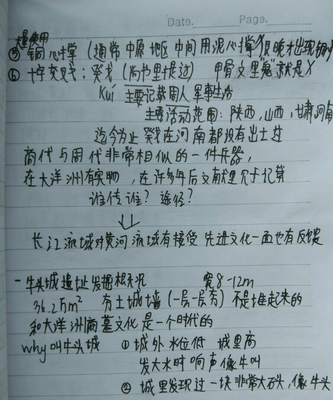 Date. Page.
⑤ 铜芯撑(通常中原地区中间用泥芯撑,很晚才出现铜
⑥ 十字交叉:癸戈(尚书里提过) 甲骨文里癸就是X
Kuí 主要记载周人军事生活
主要活动范围:陕西,山西,甘肃
迄今为止 癸在河南都没有出土过
商代与周代非常相似的一件兵器,
在大洋洲有实物,在许多年后文献里
谁传谁? 途径?
长江流域对黄河流域有接受先进文化一面也有反馈
一 牛头城遗址发掘 宽8-12m
36.2万m² 有土城墙(一层一层夯)不是堆起来的
和大洋洲商墓文化是一个时代的
why叫牛头城 ① 城外水位低 城里高
发大水时响声像牛叫
② 城里发现过一块非常大石头,像牛头